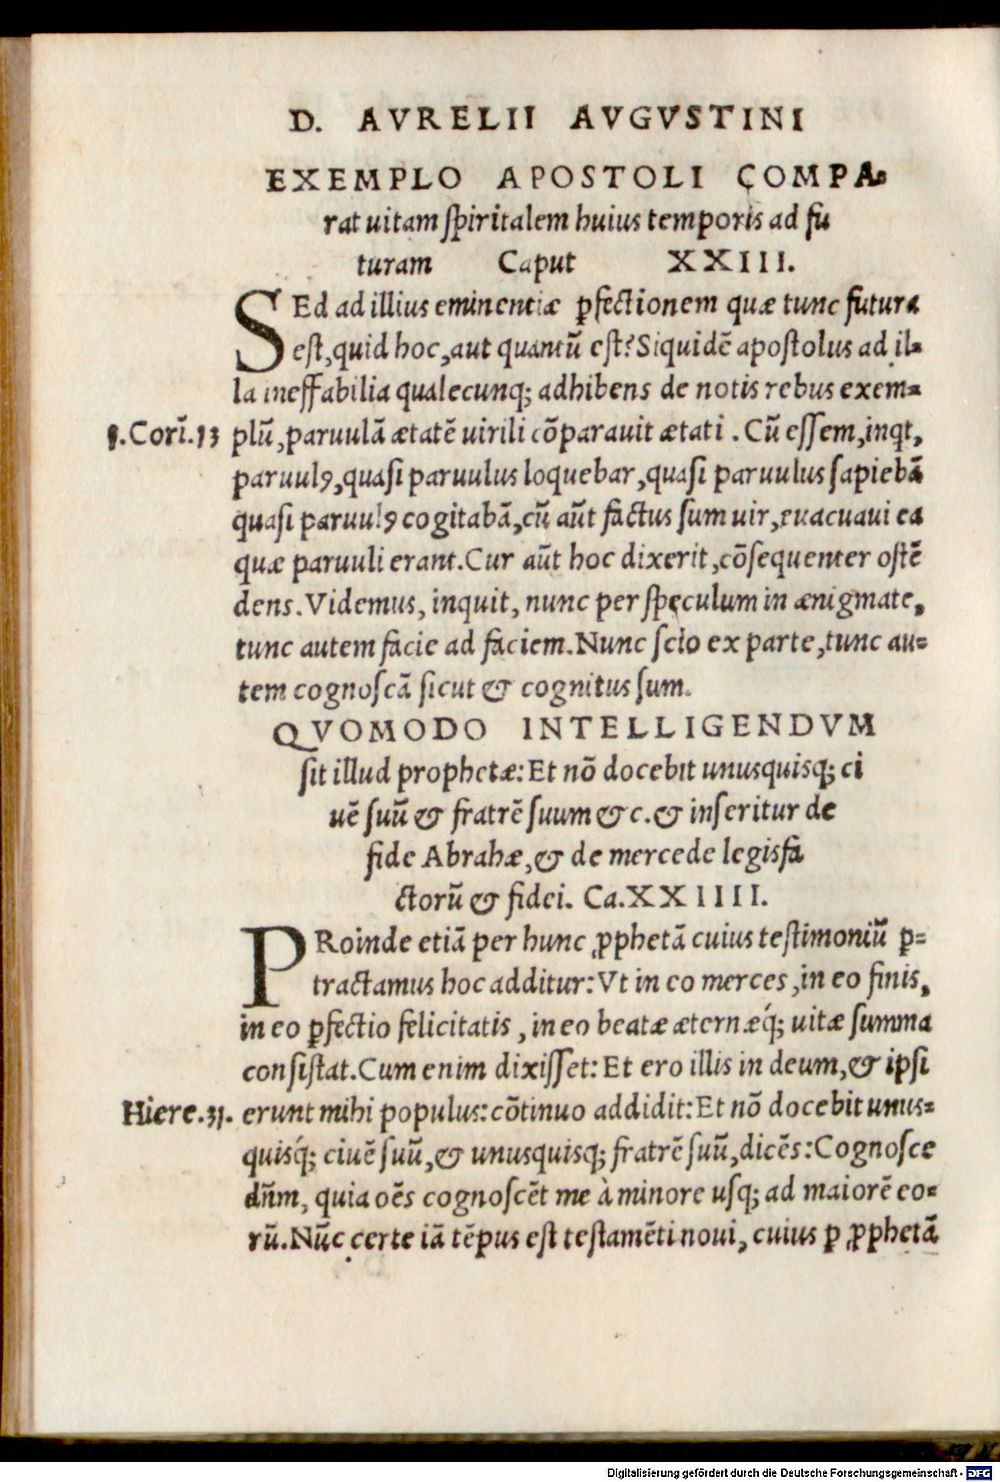 D. AVRELII AVGVSTINI
EXEMPLO APOSTOLI COMPA⸗
rat uitam ſpiritalem huius temporis ad fu
turam Caput XXIII.
SEd ad illius eminentiæ ꝑfectionem quæ tunc futura
eſt, quid hoc, aut quantũ eſt? Siquidẽ apoſtolus ad il⸗
la ineffabilia qualecunq; adhibens de notis rebus exem⸗
1.Corĩ.13 plũ, paruulã ætatẽ uirili cõparauit ætati. Cũ eſſem, inqt,
paruulꝯ, quaſi paruulus loquebar, quaſi paruulus ſapiebã
quaſi paruulꝯ cogitabã, cũ aũt factus ſum uir, euacuaui ea
quæ paruuli erant. Cur aũt hoc dixerit, cõſequenter oſtẽ
dens. Videmus, inquit, nunc per ſpeculum in ænigmate,
tunc autem facie ad faciem. Nunc ſcio ex parte, tunc au⸗
tem cognoſcã ſicut & cognitus ſum.
QVOMODO INTELLIGENDVM
ſit illud prophetæ: Et nõ docebit unusquisq; ci
uẽ ſuũ & fratrẽ ſuum & c. & inſeritur de
fide Abrahæ, & de mercede legisfa
ctorũ & fidei. Ca. XXIIII.
PRoinde etiã per hunc ꝓphetã cuius teſtimoniũ ꝑ⸗
tractamus hoc additur: Vt in eo merces, in eo finis,
in eo ꝑfectio felicitatis, in eo beatæ æternæq́; uitæ ſumma
conſiſtat. Cum enim dixiſſet: Et ero illis in deum, & ipſi
Hiere.31. erunt mihi populus: cõtinuo addidit: Et nõ docebit unus⸗
quisq́; ciuẽ ſuũ, & unusquisq; fratrẽ ſuũ, dicẽs: Cognoſce
dñm, quia oẽs cognoſcẽt me à minore uſq; ad maiorẽ eo⸗
rũ. Nũc certe iã tẽpus eſt teſtamẽti noui, cuius ꝑ ꝓphetã
Digitalisierung gefördert durch die Deutsche Forschungsgemeinschaft - DFG